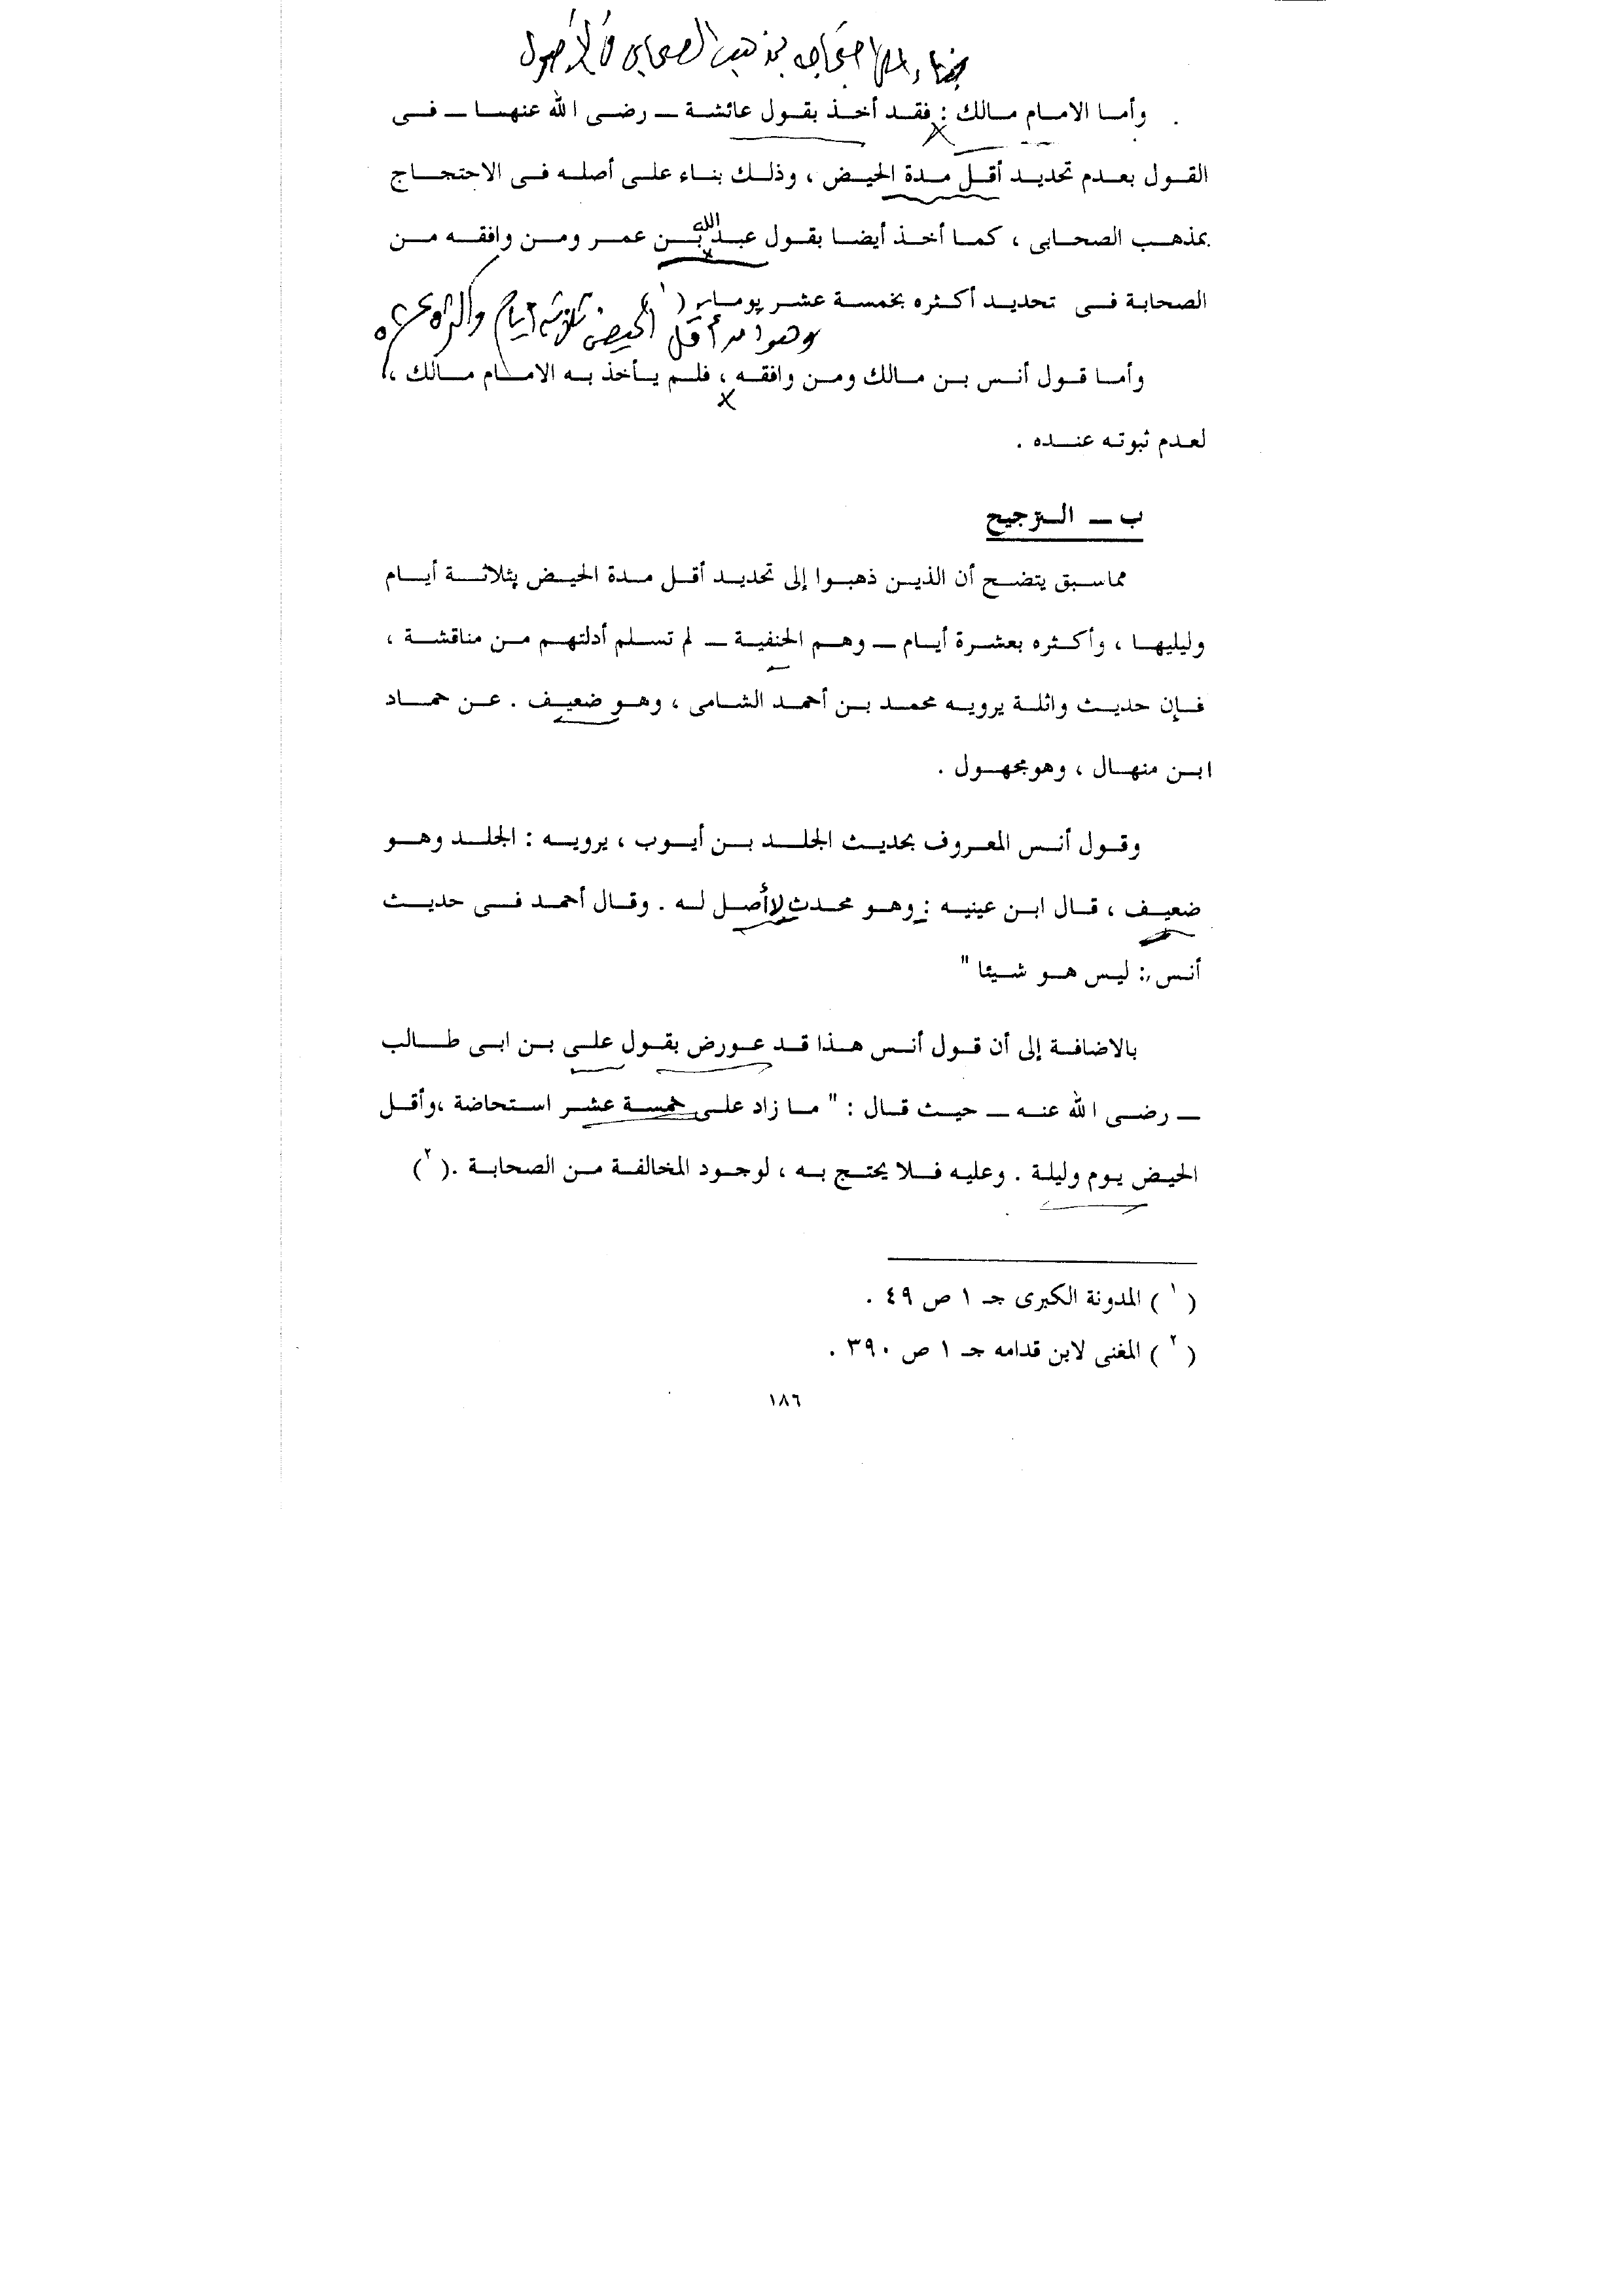 بناء على احتجاجه بمذهب الصحابي في الأصول
. وأما الامام مالك : فقد أخذ بقول عائشة ــ رضى الله عنهما ــ فى
القول بعدم تحديد أقل مدة الحيض ، وذلك بناء على أصله فى الاحتجاج
بمذهب الصحابى ، كما أخذ أيضا بقول عبد الله بن عمر ومن وافقه من
الصحابة فى تحديد أكثره بخمسة عشر يوما . (١)
وهو أن أقل الحيض ثلاثة أيام وأكثره عشرة
وأما قول أنس بن مالك ومن وافقه ، فلم يأخذ به الامام مالك ،
لعدم ثبوته عنده .
ب ــ الترجيح
مماسبق يتضح أن الذين ذهبوا إلى تحديد أقل مدة الحيض بثلاثة أيام
وليليها ، وأكثره بعشرة أيام ــ وهم الحنفية ــ لم تسلم أدلتهم من مناقشة ،
فإن حديث واثلة يرويه محمد بن أحمد الشامى ، وهو ضعيف . عن حماد
ابن منهال ، وهو مجهول .
وقول أنس المعروف بحديث الجلد بن أيوب ، يرويه : الجلد وهو
ضعيف ، قال ابن عينيه : وهو محدث لا أصل له . وقال أحمد فى حديث
أنس : ليس هو شيئا "
بالاضافة إلى أن قول أنس هذا قد عورض بقول على بن ابى طالب
ــ رضى الله عنه ــ حيث قال : " ما زاد على خمسة عشر استحاضة ،وأقل
الحيض يوم وليلة . وعليه فلا يحتج به ، لوجود المخالفة من الصحابة .(٢)
(١) المدونة الكبرى جـ ١ ص ٤٩ .
(٢) المغنى لابن قدامه جـ ١ ص ٣٩٠ .
١٨٦